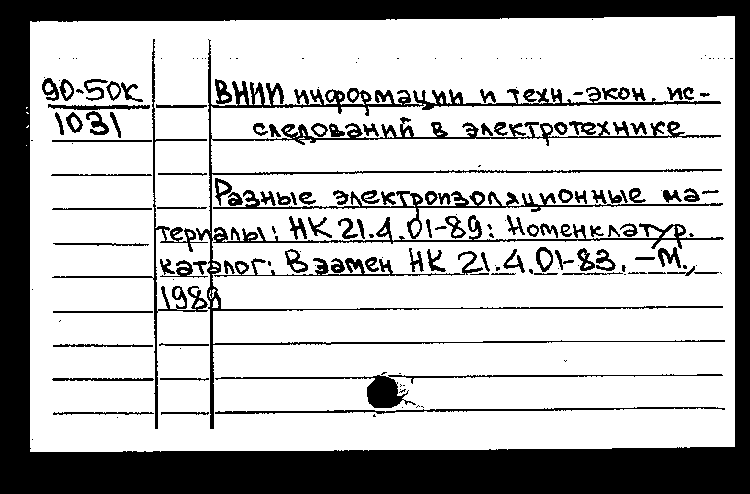 90-50К
1031
ВНИИ информации и техн.-экон. ис-
следований в электротехнике
Разные электроизоляционные ма-
териалы: НК 21.4.01-89: Номенклатур.
каталог: Взамен НК 21.4.01-83. -М.,
1989